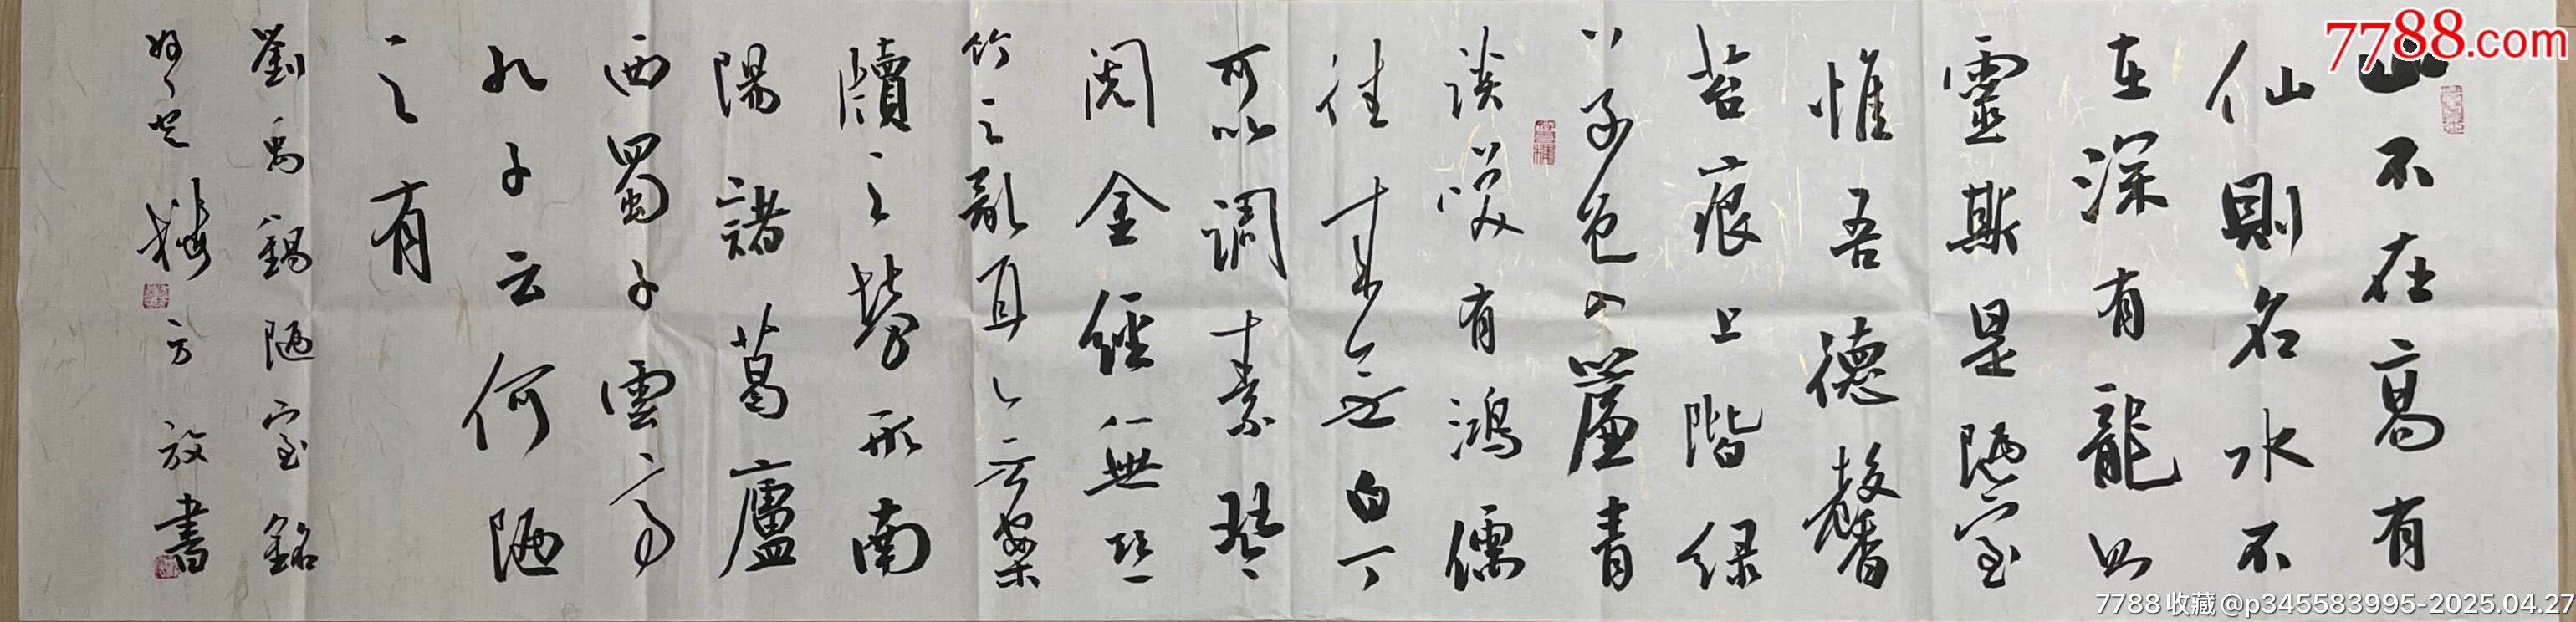 山不在高有
仙則名水不
在深有龍則
靈斯是陋室
惟吾德馨
苔痕上階緑
草色入簾青
談笑有鴻儒
往來無白丁
可以調素琴
閲金經無絲
竹之亂耳无案
牘之勞形南
陽諸葛廬
西蜀子雲亭
孔子云何陋
之有
劉禹錫陋室銘
方放書
7788.com
7788收藏@p345583995-2025.04.27